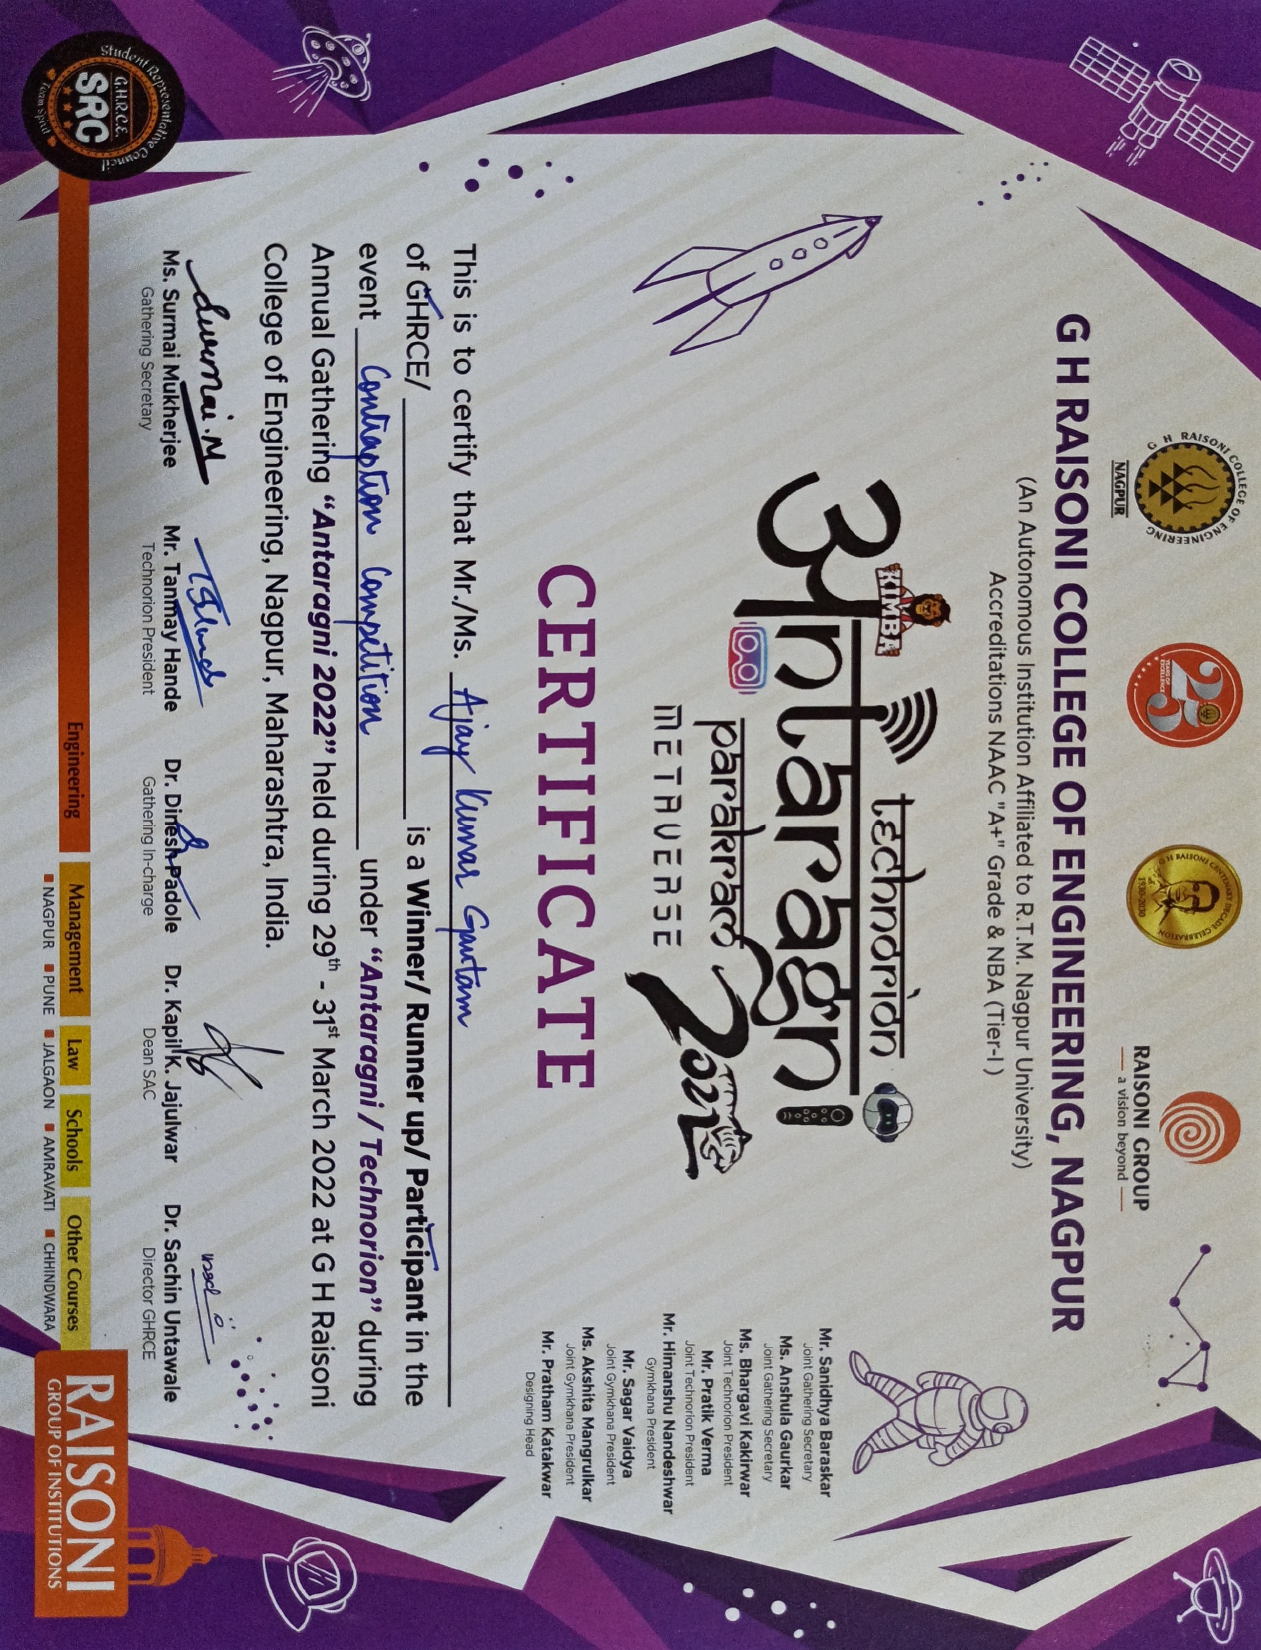 G H RAISONI COLLEGE OF ENGINEERING
NAGPUR
25
YEARS OF EXCELLENCE
G H RAISONI CENTENARY DECADE CELEBRATION
1930-2030
RAISONI GROUP
a vision beyond
G H RAISONI COLLEGE OF ENGINEERING, NAGPUR
(An Autonomous Institution Affiliated to R.T.M. Nagpur University)
Accreditations NAAC "A+" Grade & NBA (Tier-I )
KIMBA
technorion
अntaragni
parakram 2022
METAVERSE
Mr. Sanidhya Baraskar
Joint Gathering Secretary
Ms. Anshula Gaurkar
Joint Gathering Secretary
Ms. Bhargavi Kakirwar
Joint Technorion President
Mr. Pratik Verma
Joint Technorion President
Mr. Himanshu Nandeshwar
Gymkhana President
Mr. Sagar Vaidya
Joint Gymkhana President
Ms. Akshita Mangrulkar
Joint Gymkhana President
Mr. Pratham Katakwar
Designing Head
CERTIFICATE
This is to certify that Mr./Ms. Ajay Kumar Gautam
of GHRCE/ is a Winner/ Runner up/ Participant in the
event Contraption Competition under “Antaragni / Technorion” during
Annual Gathering “Antaragni 2022” held during 29th - 31st March 2022 at G H Raisoni
College of Engineering, Nagpur, Maharashtra, India.
Surmai.M
Ms. Surmai Mukherjee
Gathering Secretary
Mr. Tanmay Hande
Technorion President
Dr. Dinesh Padole
Gathering In-charge
Dr. Kapil K. Jajulwar
Dean SAC
Dr. Sachin Untawale
Director GHRCE
Student Representative Council
G.H.R.C.E.
SRC
Team Spirit
Engineering Management Law Schools Other Courses
NAGPUR PUNE JALGAON AMRAVATI CHHINDWARA
RAISONI
GROUP OF INSTITUTIONS